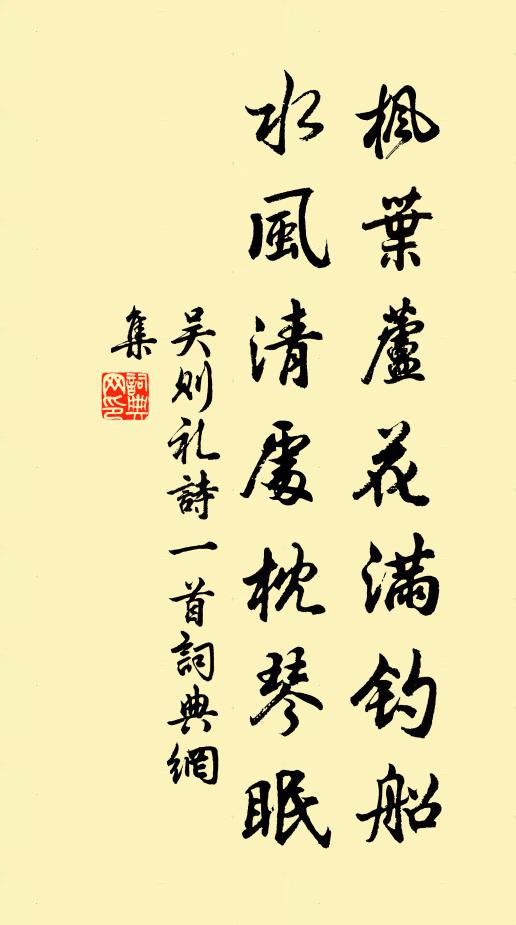 枫葉蘆花满钓船
水風清處枕琴眠
吴则礼詩一首詞典網
集
詞典网印